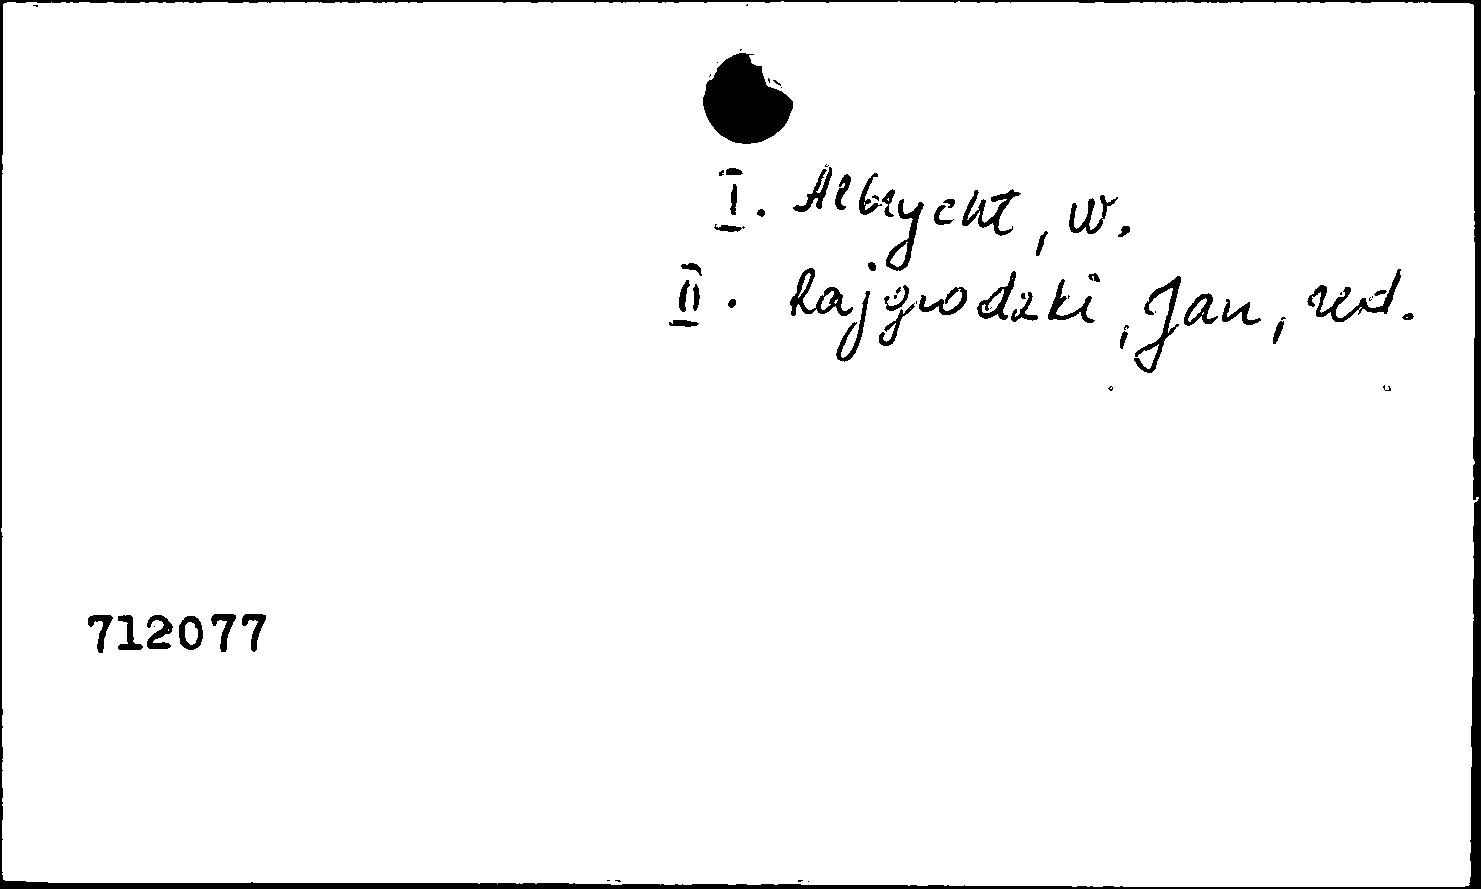 I. Albrycht, W.
II. Rajgrodzki, Jan, red.
712077